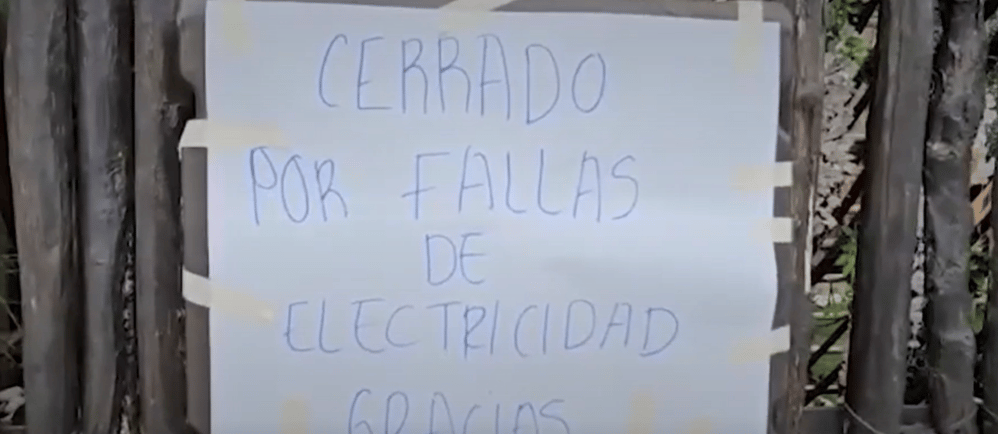 CERRADO
POR FALLAS
DE
ELECTRICIDAD
GRACIAS